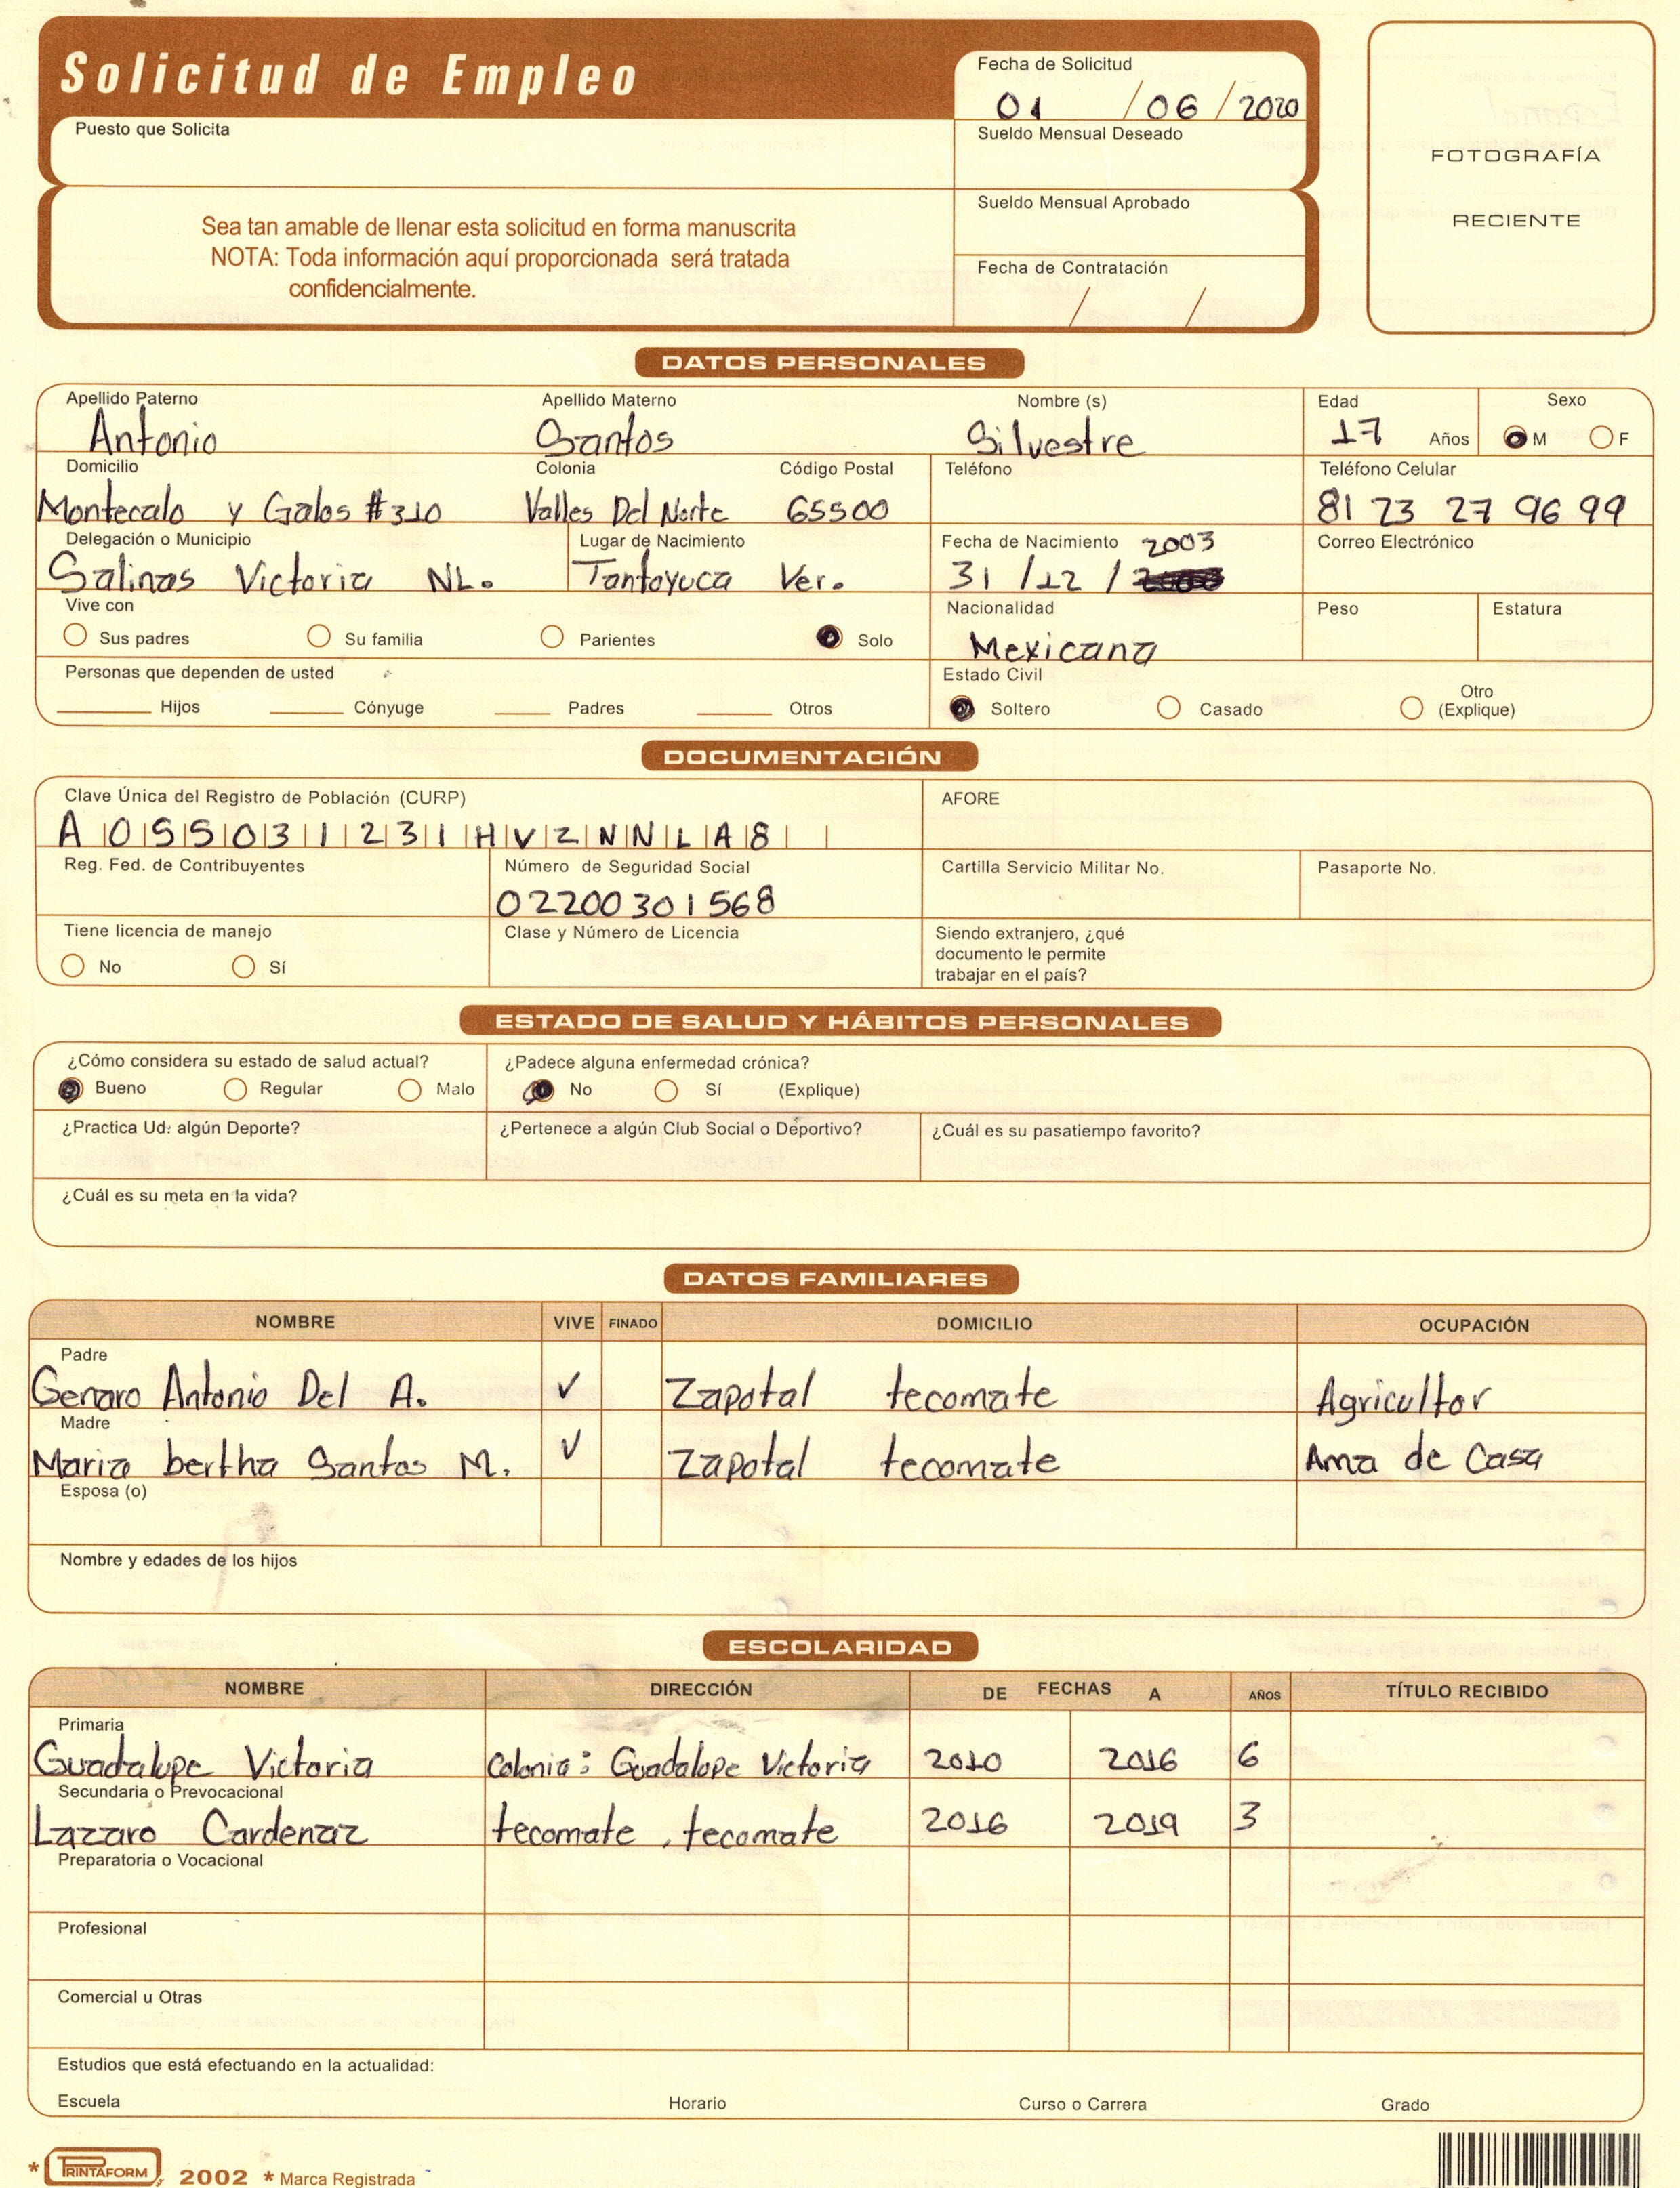 Solicitud de Empleo
Fecha de Solicitud
01 / 06 / 2020
Puesto que Solicita
Sueldo Mensual Deseado
FOTOGRAFÍA
RECIENTE
Sea tan amable de llenar esta solicitud en forma manuscrita
NOTA: Toda información aquí proporcionada será tratada
confidencialmente.
Sueldo Mensual Aprobado
Fecha de Contratación
/ /
DATOS PERSONALES
Apellido Paterno Apellido Materno Nombre (s) Edad Sexo
Antonio Santos Silvestre 17 Años M F
Domicilio Colonia Código Postal Teléfono Teléfono Celular
Montecalo y Galos #310 Valles Del Norte 65500 81 23 27 96 99
Delegación o Municipio Lugar de Nacimiento Fecha de Nacimiento 2003 Correo Electrónico
Salinas Victoria NL. Tantoyuca Ver. 31 / 12 /
Vive con Nacionalidad Peso Estatura
Sus padres Su familia Parientes Solo Mexicana
Personas que dependen de usted Estado Civil
Hijos Cónyuge Padres Otros Soltero Casado Otro (Explique)
DOCUMENTACIÓN
Clave Única del Registro de Población (CURP) AFORE
A O S S 0 3 1 2 3 1 H V Z N N L A 8
Reg. Fed. de Contribuyentes Número de Seguridad Social Cartilla Servicio Militar No. Pasaporte No.
02200301568
Tiene licencia de manejo Clase y Número de Licencia Siendo extranjero, ¿qué
documento le permite
trabajar en el país?
No Sí
ESTADO DE SALUD Y HÁBITOS PERSONALES
¿Cómo considera su estado de salud actual? ¿Padece alguna enfermedad crónica?
Bueno Regular Malo No Sí (Explique)
¿Practica Ud: algún Deporte? ¿Pertenece a algún Club Social o Deportivo? ¿Cuál es su pasatiempo favorito?
¿Cuál es su meta en la vida?
DATOS FAMILIARES
NOMBRE VIVE FINADO DOMICILIO OCUPACIÓN
Padre
Genaro Antonio Del A. ✓ Zapotal tecomate Agricultor
Madre
Maria bertha Santos M. ✓ Zapotal tecomate Ama de Casa
Esposa (o)
Nombre y edades de los hijos
ESCOLARIDAD
NOMBRE DIRECCIÓN DE FECHAS A AÑOS TÍTULO RECIBIDO
Primaria
Guadalupe Victoria Colonia: Guadalope Victoria 2010 2016 6
Secundaria o Prevocacional
Lazaro Cardenaz tecomate, tecomate 2016 2019 3
Preparatoria o Vocacional
Profesional
Comercial u Otras
Estudios que está efectuando en la actualidad:
Escuela Horario Curso o Carrera Grado
* PRINTAFORM 2002 * Marca Registrada